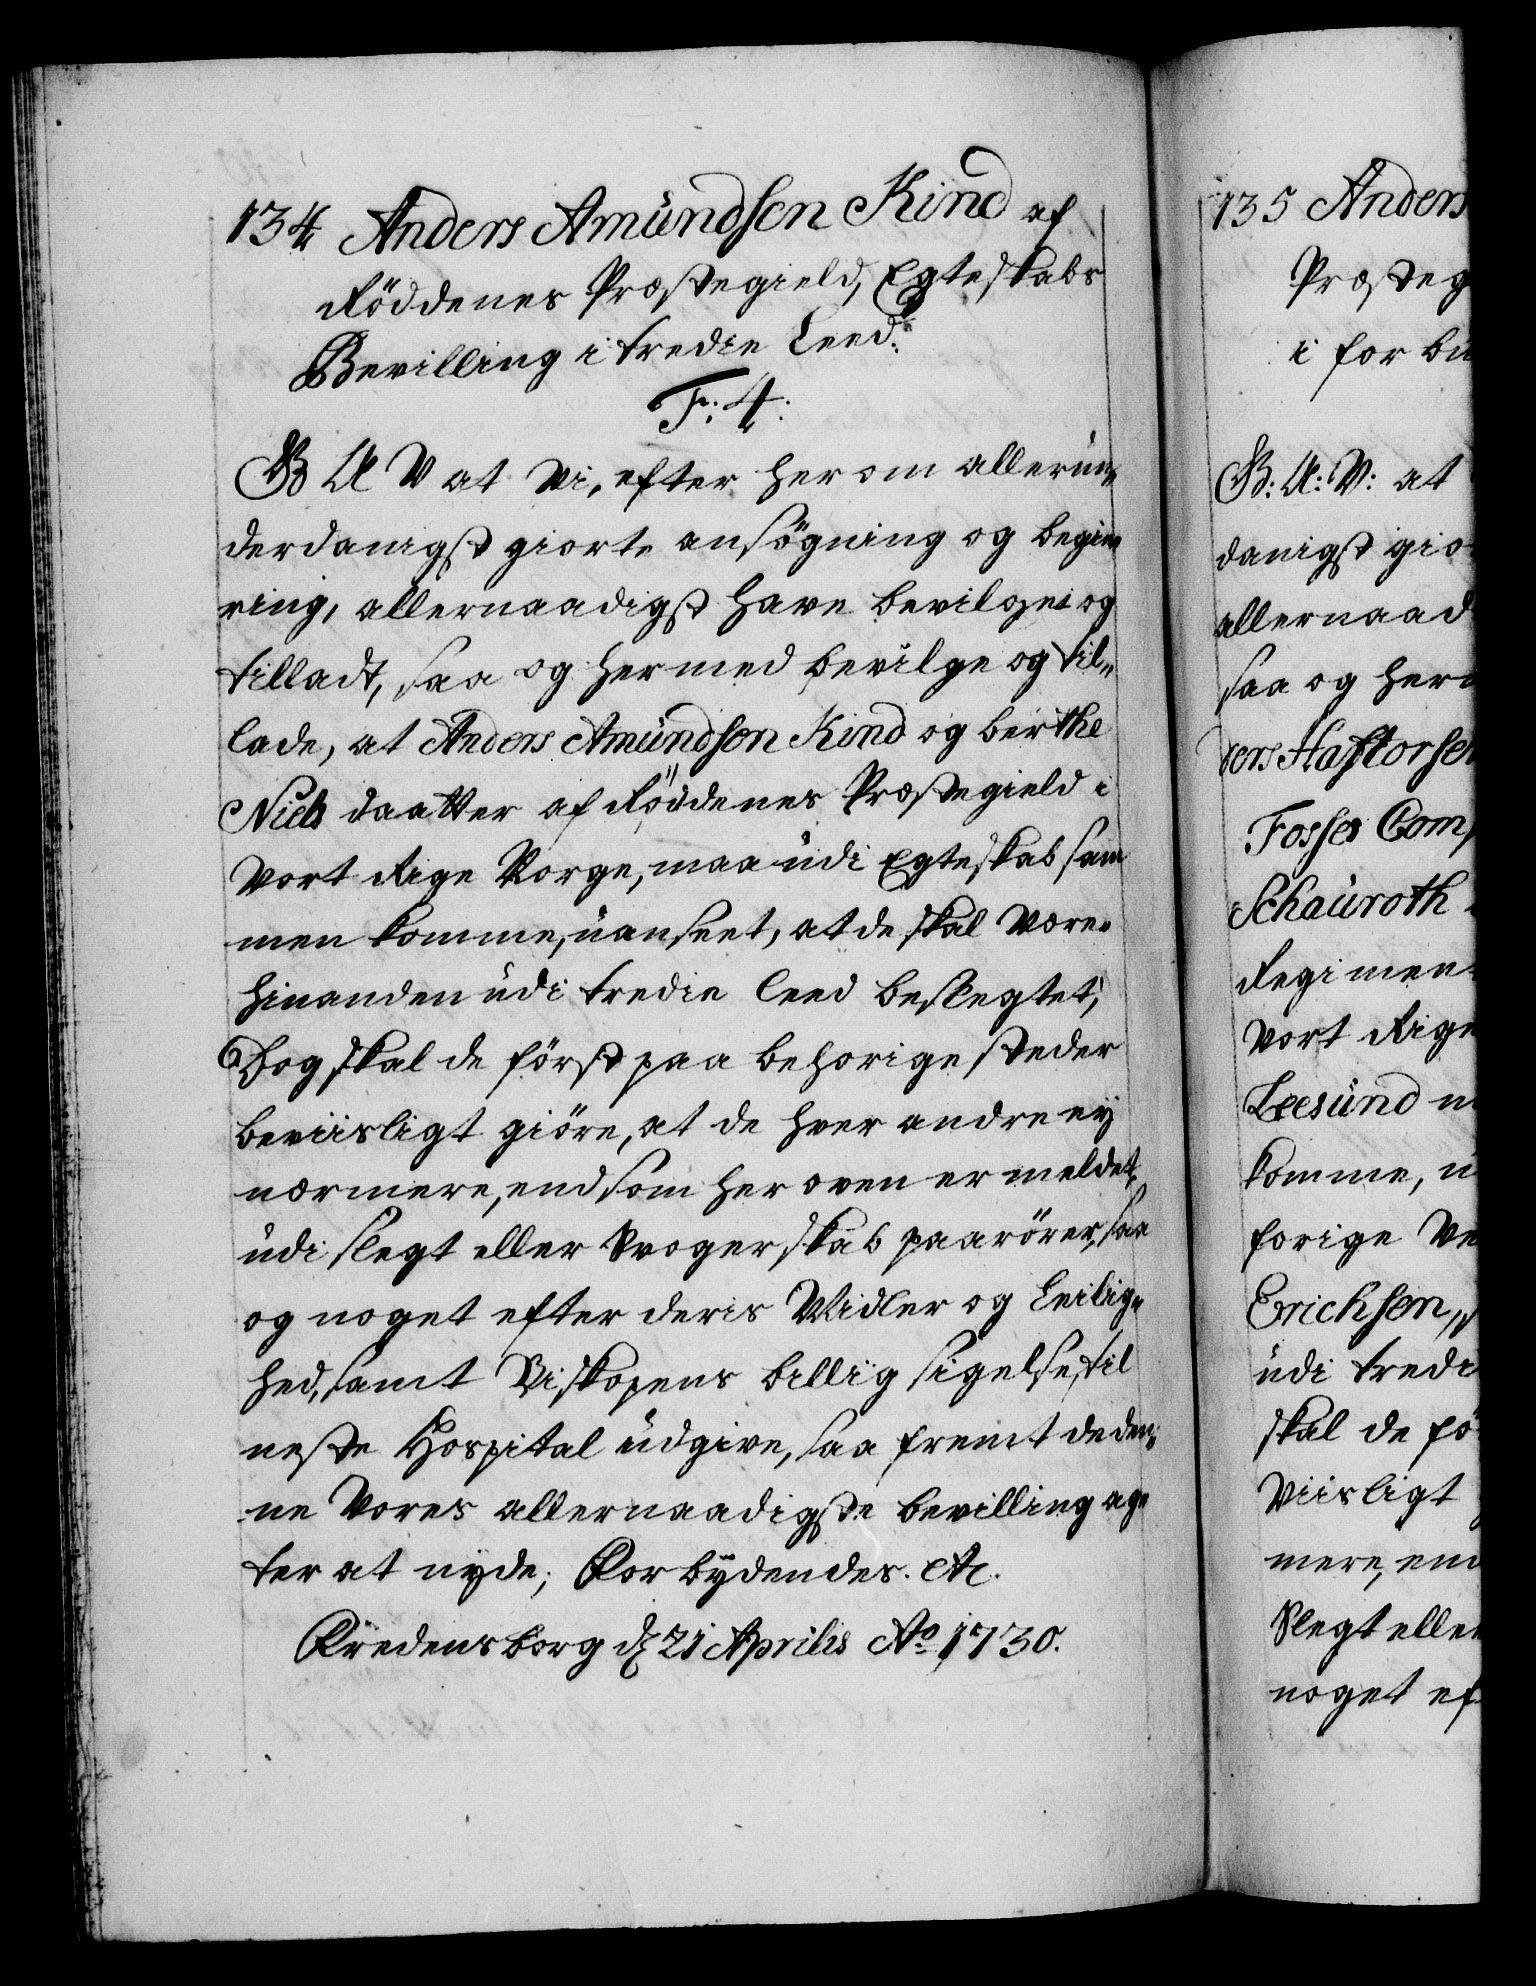 134 Anders Amundsen Kind af
Röddenes Præstegield, Egteskabs
Bevilling i tredie Leed.
F: 4.
G A V at Vi, efter her om allerun-
derdanigst giorte ansögning og begie-
ring, allernaadigst have bevilget og
tilladt, saa og hermed bevilge og til-
lade, at Anders Amundsen Kind og berthe
Niels daatter af Röddenes Præstegield i
Vort Rige Norge, maa udi Egteskab sam-
men komme, uanseet, at de skal være
hinanden udi tredie leed beslegtet;
Dog skal de först paa behörige steder
beviisligt giöre, at de hver andre ey
nærmere, end som her oven er meldet,
udi slegt eller Svogerskab paarörer, saa
og noget efter deris Midler og Leilig-
hed, samt Biskopens billig sigelse, til
neste Hospital udgive, saa fremt de den-
ne Vores allernaadigste bevilling ag-
ter at nyde; Forbydendes. etc.
Fredensborg d 21 Aprilis Ao 1730.
135 Anders
Præsteg
i for bu
G: A: V: at
danigst gio
allernaad
saa og her
ders Haftorsen
Fosses Comp
Schauroth
Regimen
Vort Rige
Leesund
komme, u
forige Ve
Erichsen,
udi tredi
skal de fö
viisligt
mere, end
Slegt eller
noget ef